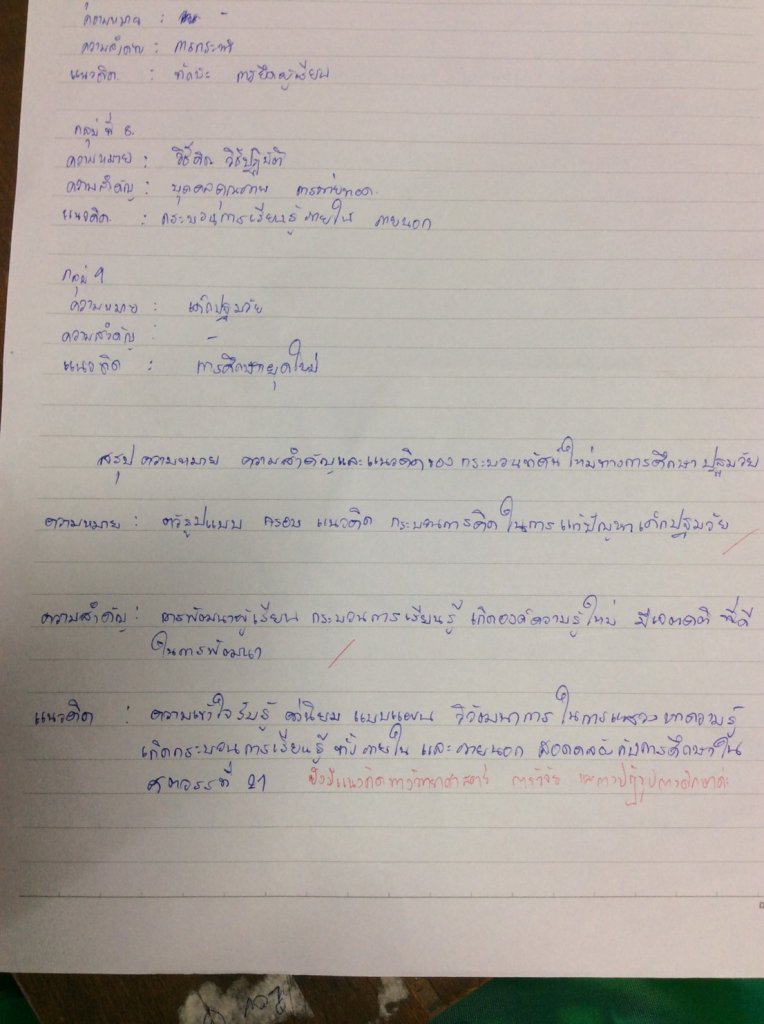 ความหมาย :
ความสำคัญ : การกระทำ
แนวคิด : ทักษะ การยึดผู้เรียน
กลุ่มที่ 8.
ความหมาย : วิธีคิด วิธีปฏิบัติ
ความสำคัญ : บุคคลคุณภาพ การถ่ายทอด
แนวคิด : กระบวนการเรียนรู้ภายใน ภายนอก
กลุ่ม 9
ความหมาย : เด็กปฐมวัย
ความสำคัญ : -
แนวคิด : การศึกษายุคใหม่
สรุป ความหมาย ความสำคัญและแนวคิดของ กระบวนทัศน์ใหม่ทางการศึกษา ปฐมวัย
ความหมาย : ตัวรูปแบบ กรอบ แนวคิด กระบวนการคิดในการแก้ปัญหาเด็กปฐมวัย
ความสำคัญ : การพัฒนาผู้เรียน กระบวนการเรียนรู้ เกิดองค์ความรู้ใหม่ มีเจตคติ ที่ดี
ในการพัฒนา
แนวคิด : ความเข้าใจรับรู้ ค่านิยม แบบแผน วิวัฒนาการ ในการแสวงหาความรู้
เกิดกระบวนการเรียนรู้ ทั้งภายใน และภายนอก สอดคล้องกับการศึกษาใน
ศตวรรที่ 21 ยังมีแนวคิดทางวิทยาศาสตร์ การวิจัย และการปฏิรูปการศึกษาค่ะ